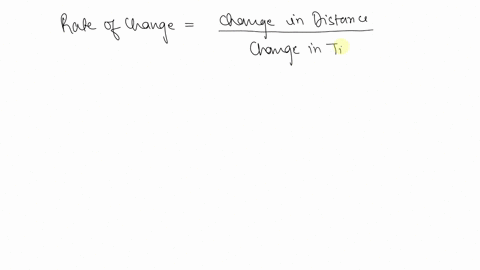 Rate of Change = Change in Distance
Change in Ti